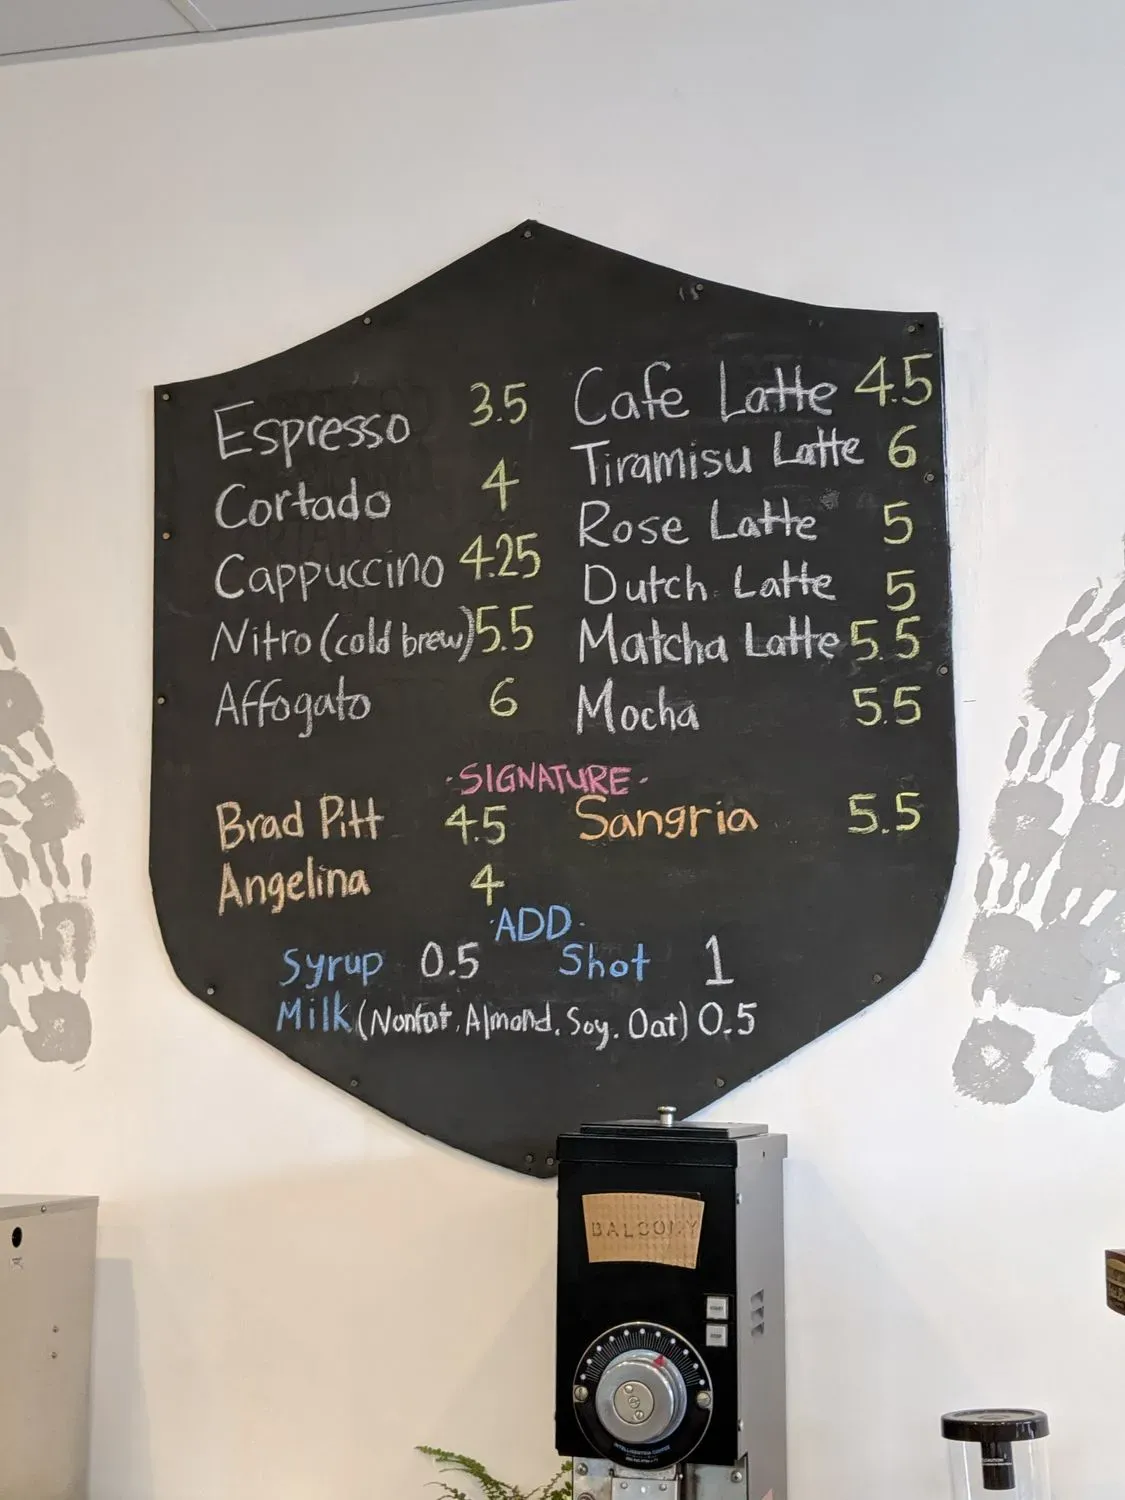 Espresso 3.5
Cortado 4
Cappuccino 4.25
Nitro (cold brew) 5.5
Affogato 6
Cafe Latte 4.5
Tiramisu Latte 6
Rose Latte 5
Dutch Latte 5
Matcha Latte 5.5
Mocha 5.5
·SIGNATURE·
Brad Pitt 4.5
Angelina 4
Sangria 5.5
·ADD·
Syrup 0.5 Shot 1
Milk (Nonfat, Almond, Soy, Oat) 0.5
BALCONY